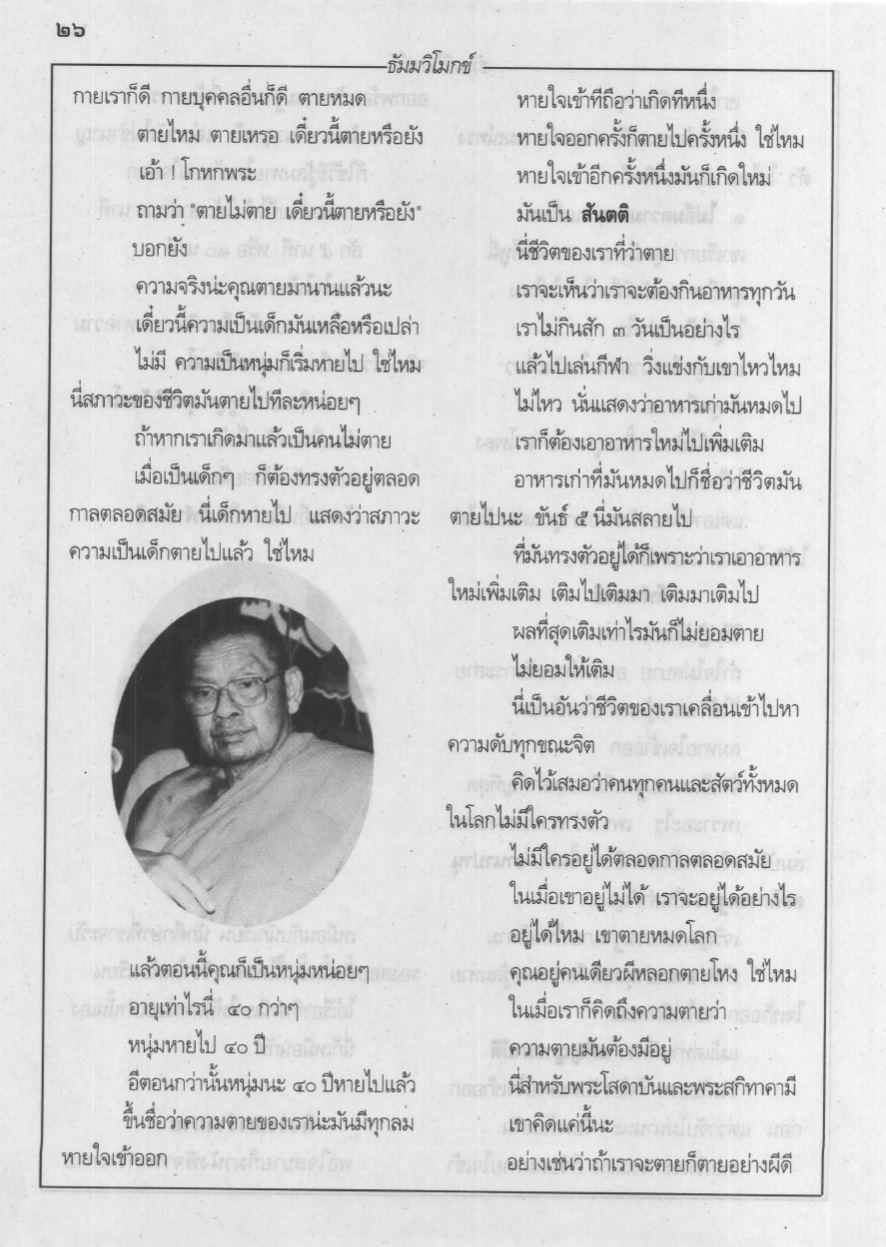 ๒๖
ธัมมวิโมกข์
กายเราก็ดี กายบุคคลอื่นก็ดี ตายหมด
ตายไหม ตายเหรอ เดี๋ยวนี้ตายหรือยัง
เอ้า ! โกหกพระ
ถามว่า "ตายไม่ตาย เดี๋ยวนี้ตายหรือยัง"
บอกยัง
ความจริงน่ะคุณตายมานานแล้วนะ
เดี๋ยวนี้ความเป็นเด็กมันเหลือหรือเปล่า
ไม่มี ความเป็นหนุ่มก็เริ่มหายไป ใช่ไหม
นี่สภาวะของชีวิตมันตายไปทีละหน่อยๆ
ถ้าหากเราเกิดมาแล้วเป็นคนไม่ตาย
เมื่อเป็นเด็กๆ ก็ต้องทรงตัวอยู่ตลอด
กาลตลอดสมัย นี่เด็กหายไป แสดงว่าสภาวะ
ความเป็นเด็กตายไปแล้ว ใช่ไหม
แล้วตอนนี้คุณก็เป็นหนุ่มหน่อยๆ
อายุเท่าไรนี่ ๔๐ กว่าๆ
หนุ่มหายไป ๔๐ ปี
อีตอนกว่านั้นหนุ่มนะ ๔๐ ปีหายไปแล้ว
ขึ้นชื่อว่าความตายของเราน่ะมันมีทุกลม
หายใจเข้าออก
หายใจเข้าทีถือว่าเกิดทีหนึ่ง
หายใจออกครั้งก็ตายไปครั้งหนึ่ง ใช่ไหม
หายใจเข้าอีกครั้งหนึ่งมันก็เกิดใหม่
มันเป็น สันตติ
นี่ชีวิตของเราที่ว่าตาย
เราจะเห็นว่าเราจะต้องกินอาหารทุกวัน
เราไม่กินสัก ๓ วันเป็นอย่างไร
แล้วไปเล่นกีฬา วิ่งแข่งกับเขาไหวไหม
ไม่ไหว นั่นแสดงว่าอาหารเก่ามันหมดไป
เราก็ต้องเอาอาหารใหม่ไปเพิ่มเติม
อาหารเก่าที่มันหมดไปก็ชื่อว่าชีวิตมัน
ตายไปนะ ขันธ์ ๕ นี่มันสลายไป
ที่มันทรงตัวอยู่ได้ก็เพราะว่าเราเอาอาหาร
ใหม่เพิ่มเติม เติมไปเติมมา เติมมาเติมไป
ผลที่สุดเติมเท่าไรมันก็ไม่ยอมตาย
ไม่ยอมให้เติม
นี่เป็นอันว่าชีวิตของเราเคลื่อนเข้าไปหา
ความดับทุกขณะจิต
คิดไว้เสมอว่าคนทุกคนและสัตว์ทั้งหมด
ในโลกไม่มีใครทรงตัว
ไม่มีใครอยู่ได้ตลอดกาลตลอดสมัย
ในเมื่อเขาอยู่ไม่ได้ เราจะอยู่ได้อย่างไร
อยู่ได้ไหม เขาตายหมดโลก
คุณอยู่คนเดียวผีหลอกตายโหง ใช่ไหม
ในเมื่อเราก็คิดถึงความตายว่า
ความตายมันต้องมีอยู่
นี่สำหรับพระโสดาบันและพระสกิทาคามี
เขาคิดแค่นี้นะ
อย่างเช่นว่าถ้าเราจะตายก็ตายอย่างผีดี